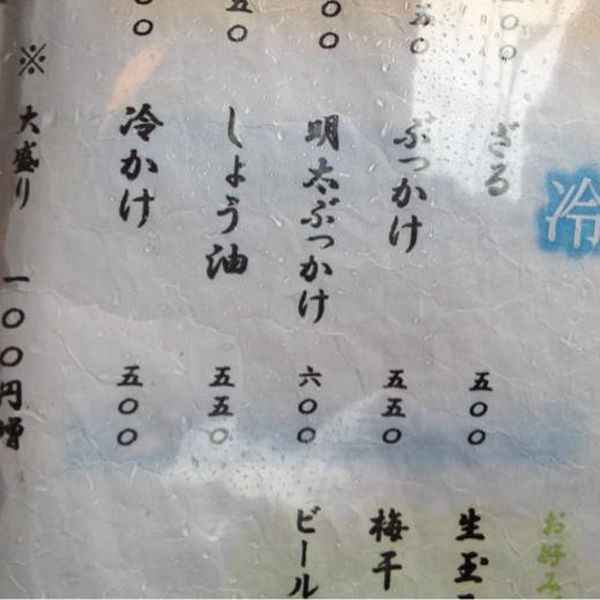 冷
ざる 五〇〇
ぶっかけ 五五〇
明太ぶっかけ 六〇〇
しょう油 五五〇
冷かけ 五〇〇
※大盛り 一〇〇円増
お好み
生玉
梅干
ビール